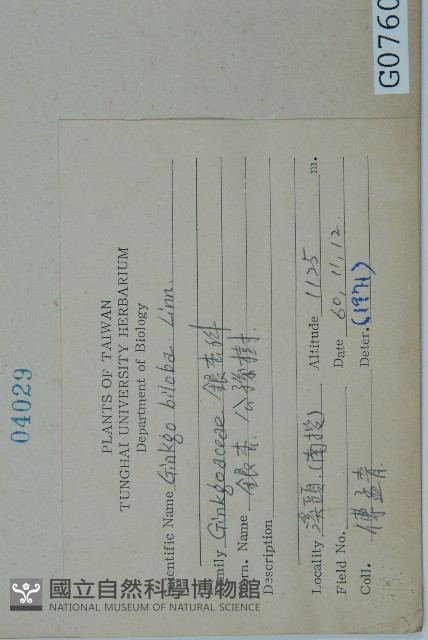 G0760
04029
PLANTS OF TAIWAN
TUNGHAI UNIVERSITY HERBARIUM
Department of Biology
entific Name Ginkgo biloba Linn.
mily Ginkgoaceae 銀杏科
om. Name 銀杏. 公孫樹.
Description
Locality 溪頭(南投) Altitude 1125 m.
Field No. Date 60, 11, 12.
Coll. 傅孟青 Deter. (1971)
國立自然科學博物館
NATIONAL MUSEUM OF NATURAL SCIENCE